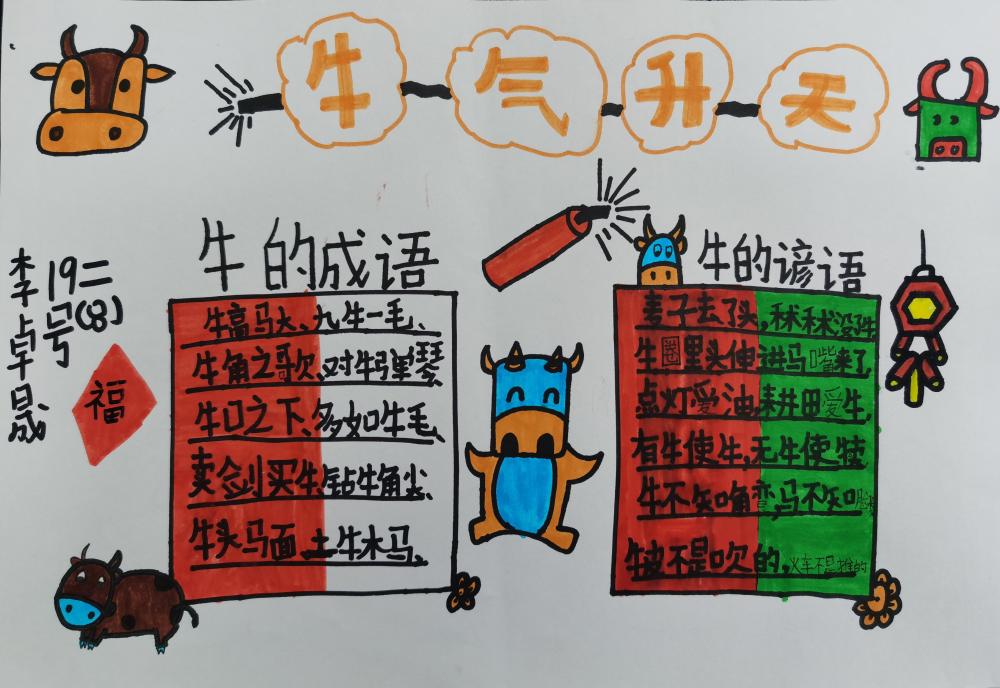 牛气升天
牛的成语
牛高马大、九牛一毛、
牛角之歌、对牛弹琴、
牛口之下、多如牛毛、
卖剑买牛、钻牛角尖、
牛头马面、土牛木马、
牛的谚语
麦子去了头,秫秫没牛
牛圈里头伸进马嘴来了
点灯爱油,耕田爱牛,
有牛使牛,无牛使犊
牛不知角弯,马不知
牛皮不是吹的,火车不是推的
李卓晟
19号
二(8)
福